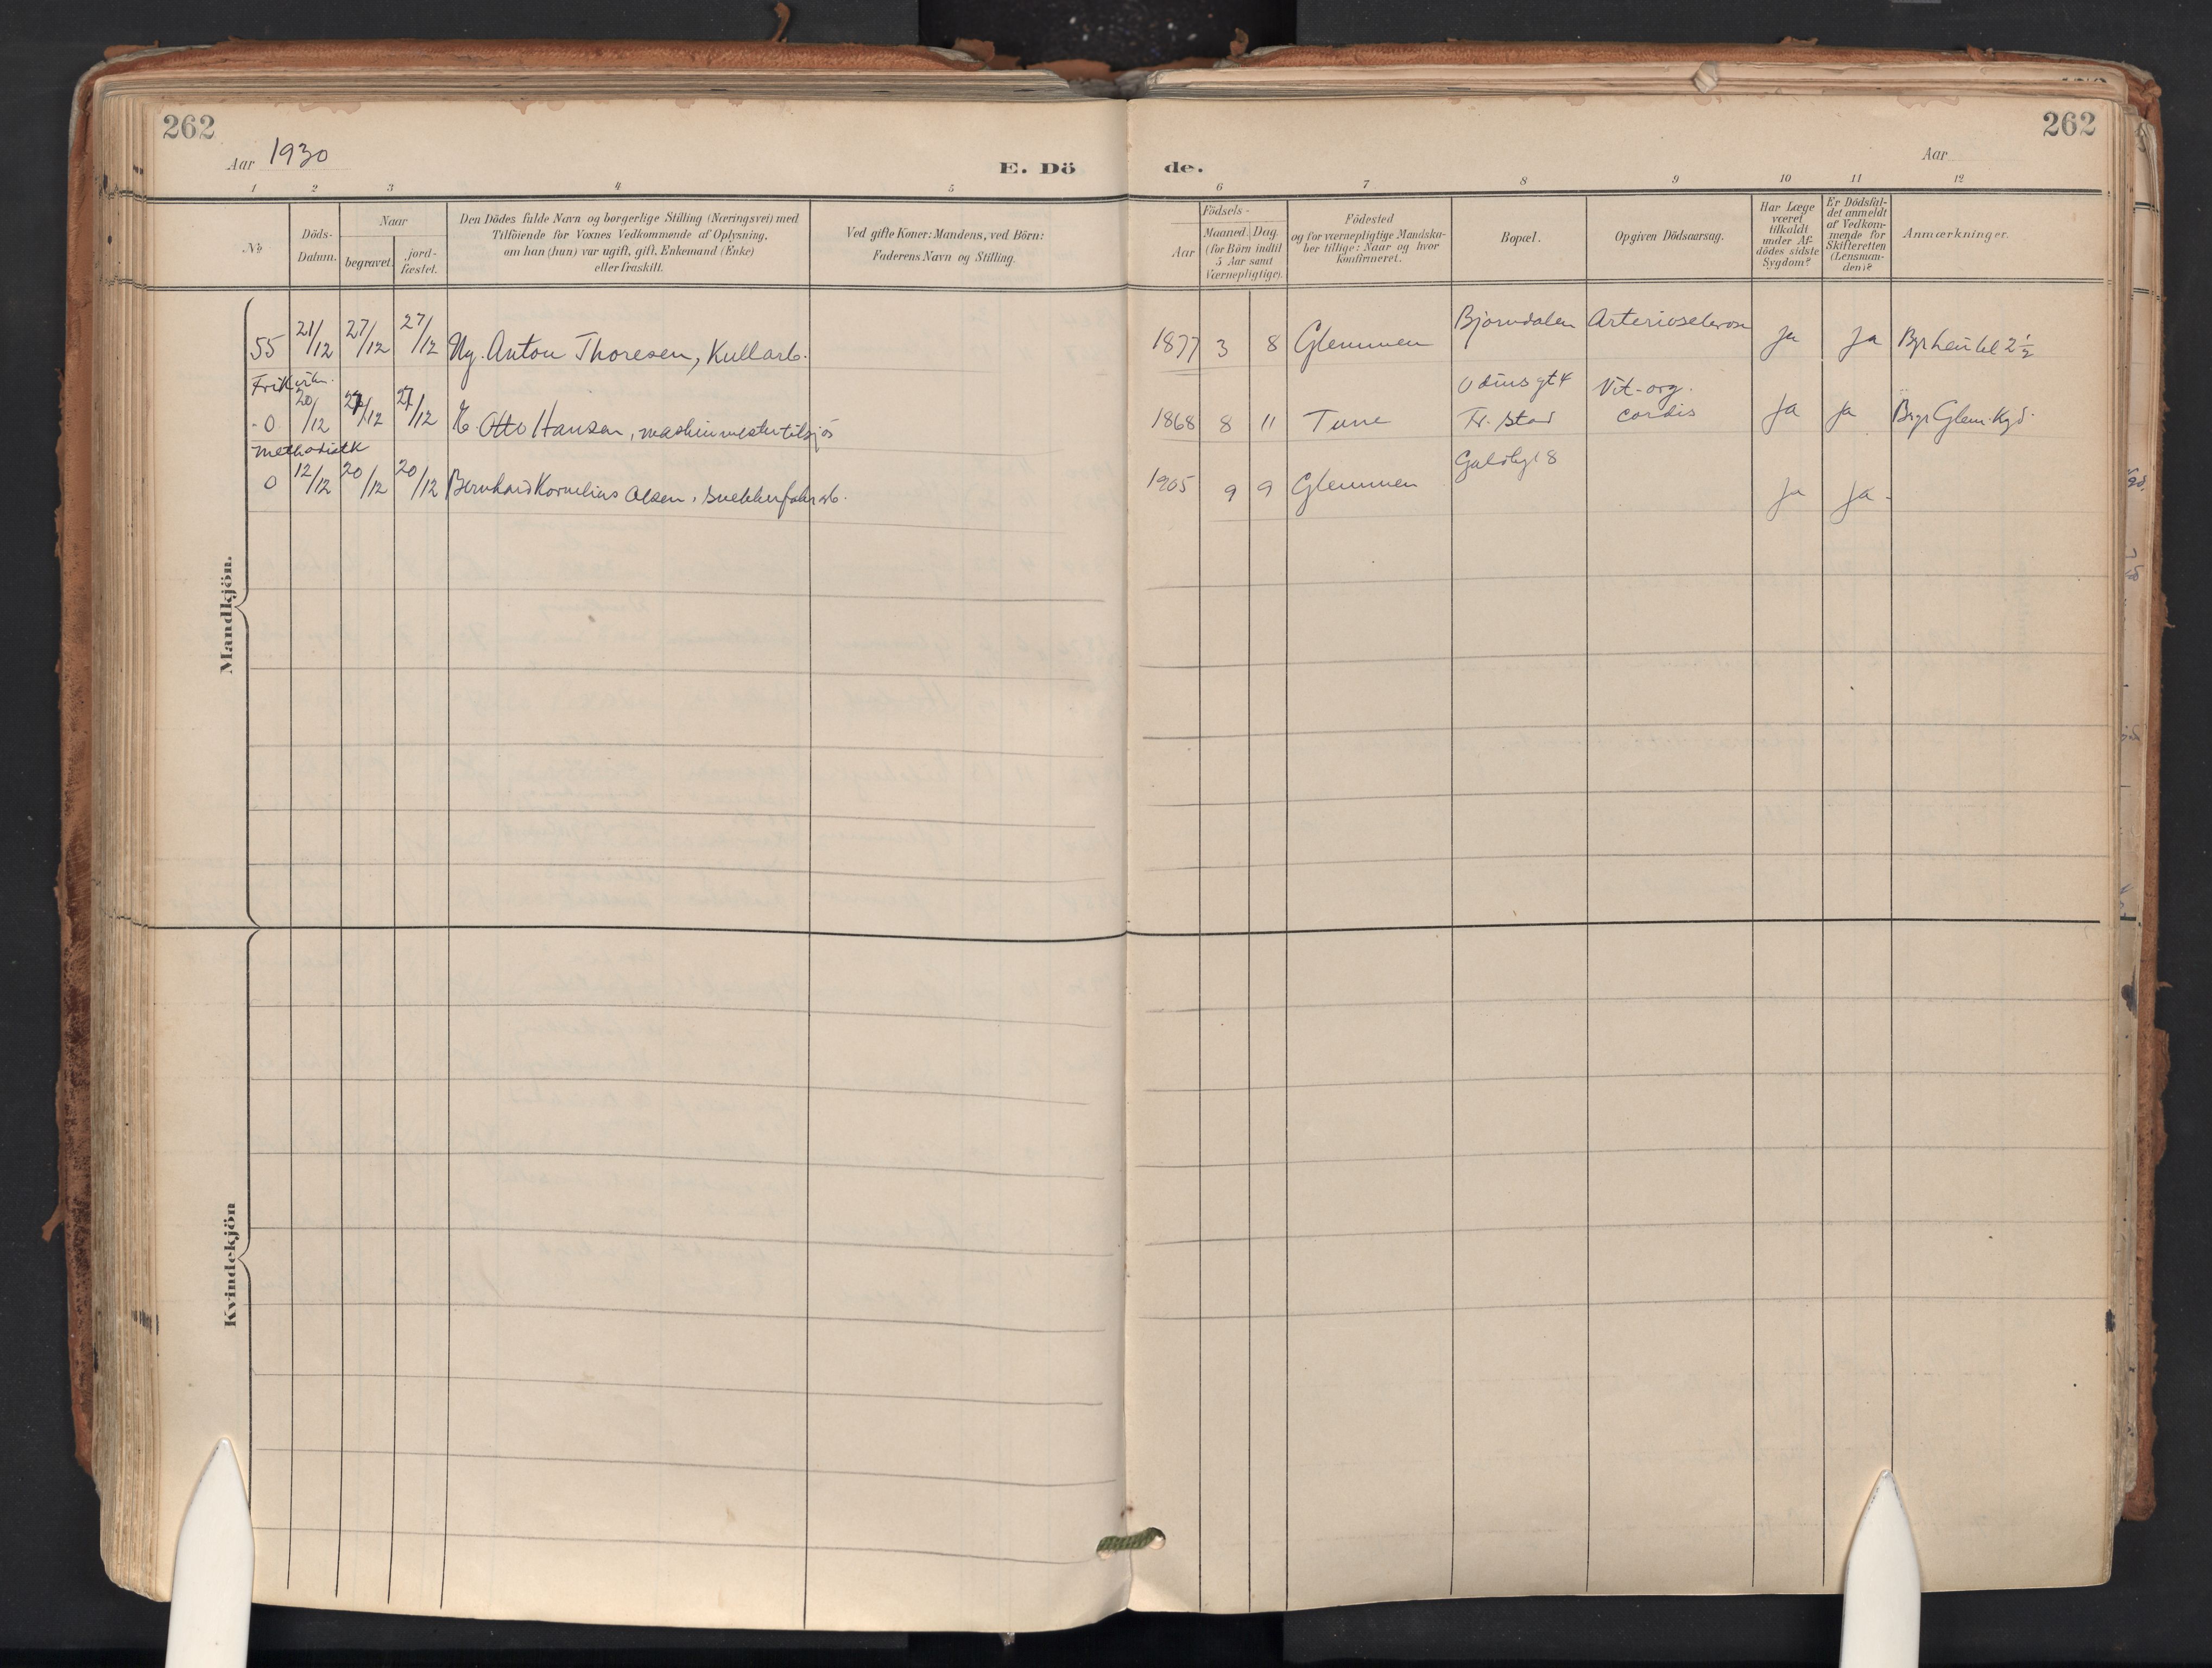 262
262
Aar 1930
E. Dö
de.
Aar
1 2 3 4 5 6 7 8 9 10 11 12
No
Döds-
Datum.
Naar
begravet.
jord-
fæstet.
Den Dödes fulde Navn og borgerlige Stilling (Næringsvei) med
Tilföiende for Voxnes Vedkommende af Oplysning,
om han (hun) var ugift, gift, Enkemand (Enke)
eller fraskilt.
Ved gifte Koner: Mandens, ved Börn:
Faderens Navn og Stilling.
Födsels-
Aar
Maaned. Dag.
(for Börn indtil
5 Aar samt
Værnepligtige).
Födested
og for værnepligtige Mandska-
ber tillige: Naar og hvor
konfirmeret.
Bopæl.
Opgiven Dödsaarsag.
Har Læge
været
tilkaldt
under Af-
dödes sidste
Sygdom?
Er Dödsfal-
det anmeldt
af Vedkom-
mende for
Skifteretten
(Lensman-
den)?
Anmærkninger.
Mandkjön.
55 21/12 27/12 27/12 Ug. Anton Thoresen, Kullarb. 1877 3 8 Glemmen Bjørndalen Arteriosclerose Ja Ja
Frik
0 20/12 27/12 27/12 Otto Hansen, maskinmester tilsjøs 1868 8 11 Tune Odinsgt 4 Fr.stad Vit. org. cordis Ja Ja Glem. Kgd.
Methodistk
0 12/12 20/12 20/12 Bernhard Kornelius Olsen, 1905 9 9 Glemmen Ja Ja
Kvindekjön